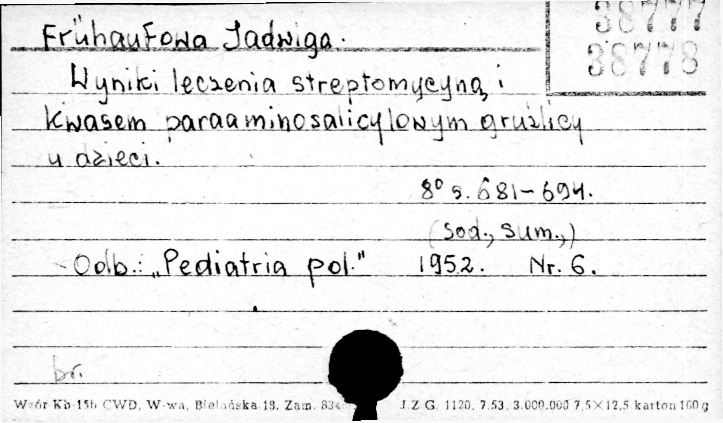 38777
38778
Frühaufowa Jadwiga.
Wyniki leczenia streptomycyną i
kwasem paraaminosalicylowym gruźlicy
u dzieci.
8° s. 681-694.
(sod., sum.,)
Odb.: "Pediatria pol." 1952. Nr. 6.
br.
Wzór Kb 15b CWD, W-wa, Bielańska 18. Zam. 834 J.Z.G. 1120, 7.53, 3.000.000 7,5×12,5 karton 160 g